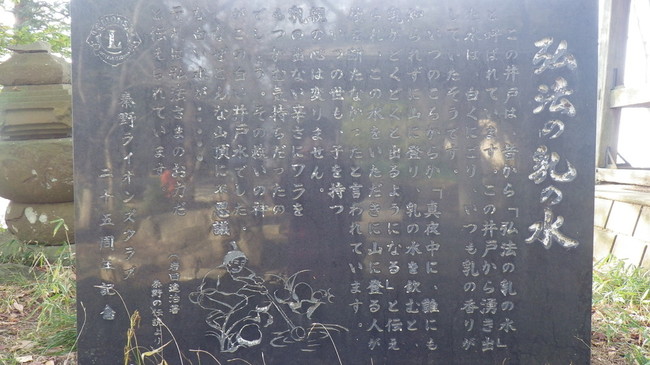 弘法の乳の水
この井戸は、昔から「弘法の乳の水」
と呼ばれています。この井戸から湧き出
水は、白くにごり、いつも乳の香りが
していたそうです。
いつのころからか、「真夜中に、誰にも
られずに山に登り、乳の水を飲むと、
乳がどくどくと出るようになる」と伝え
られ、この水をいただきに山に登る人が
たなかったと言われています。
の世も、子を持つ
親の心は変りません。
乳の出ない辛さにワラを
もつかむ気持ちだったの
でしょう。その願いの祥
がこの白い井戸水でした。
こんな山頂に不思議
弘法さまのおかげだ
と伝えられています。
(岩田達治著
秦野の伝説より)
秦野ライオンズクラブ
二十五周年記念
L